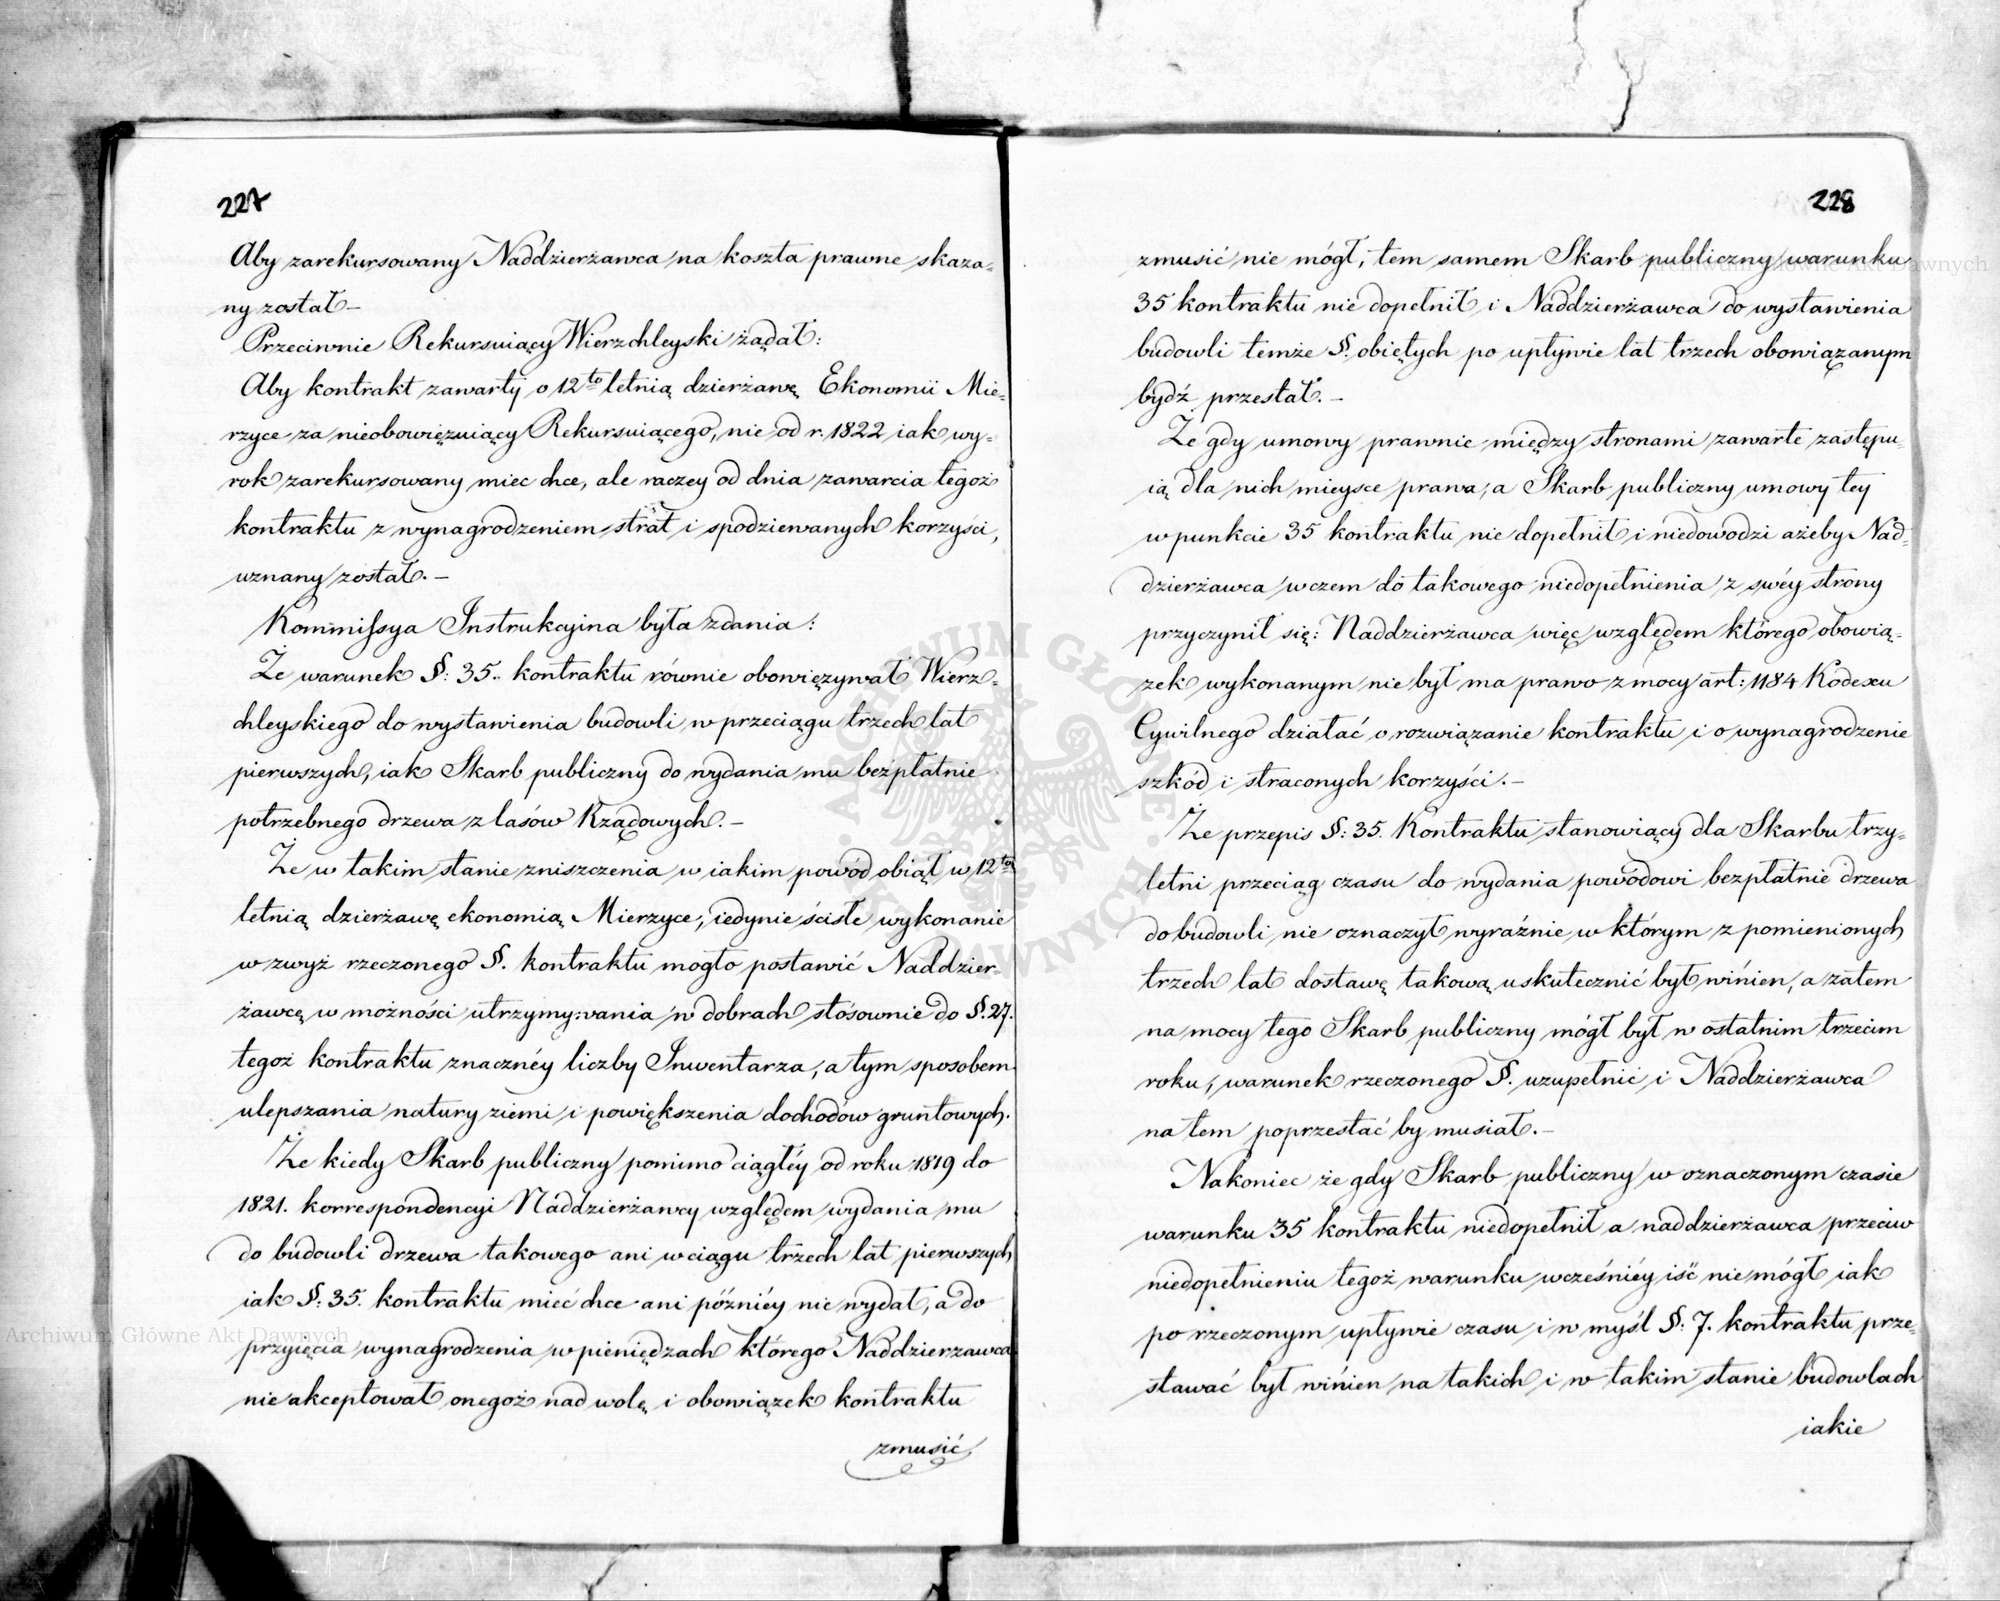 227
Aby zarekursowany Naddzierżawca na koszta prawne skaza-
ny został –
Przeciwnie Rekursuiący Wierzchleyski żądał:
Aby kontrakt zawarty o 12to letnią dzierżawę Ekonomii Mie-
rzyce za nieobowięzuiący Rekursuiącego, nie od r. 1822 iak wy-
rok zarekursowany miec chce, ale raczey od dnia zawarcia tegoż
kontraktu z wynagrodzeniem strat i spodziewanych korzyści,
uznany został. –
Kommissya Instrukcyina była zdania:
Że warunek §: 35. kontraktu równie obowięzywał Wierz-
chleyskiego do wystawienia budowli w przeciągu trzech lat
pierwszych, iak Skarb publiczny do wydania mu bezpłatnie
potrzebnego drzewa z lasów Rządowych. –
Że w takim stanie zniszczenia w iakim powód obiął w 12to
letnią dzierżawę ekonomią Mierzyce, iedynie ścisłe wykonanie
w zwyż rzeczonego §. kontraktu mogło postawić Naddzier-
żawcę w możności utrzymywania w dobrach stósownie do §. 27.
tegoż kontraktu znacznéy liczby Inwentarza, a tym sposobem
ulepszania natury ziemi i powiększenia dochodów gruntowych.
Że kiedy Skarb publiczny pomimo ciągłéy od roku 1819 do
1821. korrespondencyi Naddzierżawcy względem wydania mu
do budowli drzewa takowego ani w ciągu trzech lat pierwszych
iak §: 35. kontraktu mieć chce ani późniéy nie wydał, a do
przyięcia wynagrodzenia w pieniędzach którego Naddzierzawca
nie akceptował onegoż nad wolę i obowiązek kontraktu
zmusić
228
zmusić nie mógł, tem samem Skarb publiczny warunku
35 kontraktu nie dopełnił i Naddzierżawca do wystawienia
budowli temże §. obiętych po upływie lat trzech obowiązanym
bydź przestał. –
Że gdy umowy prawnie między stronami zawarte zastępu-
ią dla nich mieysce prawa, a Skarb publiczny umowy tey
w punkcie 35 kontraktu nie dopełnił i niedowodzi ażeby Nad-
dzierżawca w czem do takowego niedopełnienia z swéy strony
przyczynił się: Naddzierżawca więc względem którego obowią-
zek wykonanym nie był ma prawo z mocy art: 1184 Kodexu
Cywilnego działać o rozwiązanie kontraktu i o wynagrodzenie
szkód i straconych korzyści. –
Że przepis §: 35. Kontraktu stanowiący dla Skarbu trzy-
letni przeciąg czasu do wydania powodowi bezpłatnie drzewa
do budowli nie oznaczył wyraźnie w którym z pomienionych
trzech lat dostawę takową uskutecznić był winien, a zatem
na mocy tego Skarb publiczny mógł był w ostatnim trzecim
roku, warunek rzeczonego §. uzupełnić i Naddzierżawca
na tem poprzestać by musiał. –
Nakoniec że gdy Skarb publiczny w oznaczonym czasie
warunku 35 kontraktu niedopełnił a naddzierżawca przeciw
niedopełnieniu tegoż warunku wcześniéy iść nie mógł iak
po rzeczonym upływie czasu i w myśl §: 7. kontraktu prze-
stawać był winien na takich i w takim stanie budowlach
iakie
Archiwum Główne Akt Dawnych
Archiwum Główne Akt Dawnych
ARCHIWUM GŁÓWNE AKT DAWNYCH